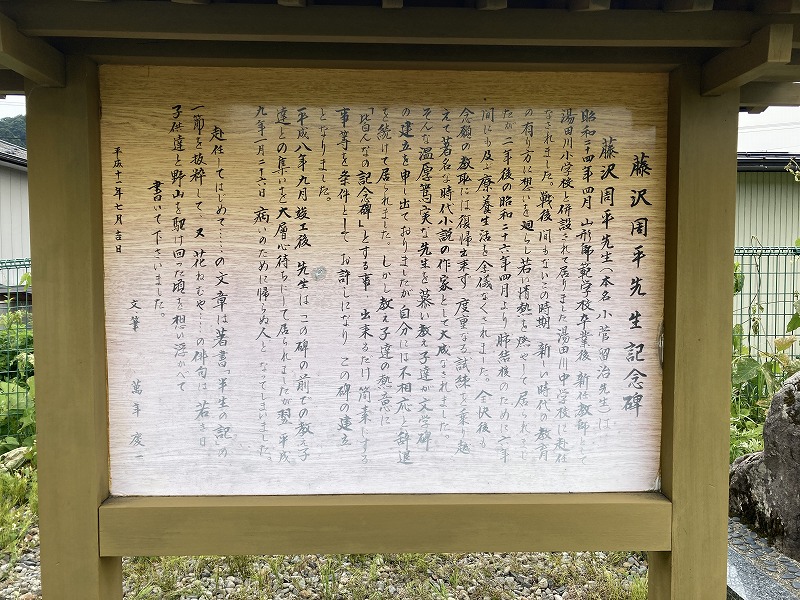 藤沢周平先生記念碑
藤沢周平先生(本名 小菅留治先生)は
昭和二十四年四月 山形師範学校卒業後 新任教師として
湯田川小学校と併設されて居りました湯田川中学校に赴任
なされました。戦後間もないこの時期 新しい時代の教育
の有り方に想いを廻らし若い情熱を燃やして居られまし
たが二年後の昭和二十六年四月より肺結核のために六年
間にも及ぶ療養生活を余儀なくされました。全快後も
念願の教職には復帰出来ず 度重なる試練を乗り越
えて著名な時代小説の作家として大成なされました。
そんな温厚篤実な先生を慕い教え子達が文学碑
の建立を申し出ておりましたが自分には不相応と辞退
を続けて居られました。しかし教え子達の熱意に
「皆んなの記念碑」とする事、出来るだけ簡素にする
事等を条件として お許しになり この碑の建立
となりました。
平成八年九月竣工後 先生は この碑の前での教え子
達との集いを大層心待ちにして居られましたが翌 平成
九年一月二十六日 病いのために帰らぬ人となってしまいました。
赴任してはじめて……の文章は著書「半生の記」の
一節を抜粋して、又 花ねむや……の俳句は 若き日
子供達と野山を駆け回った頃を想い浮かべて
書いて下さいました。
平成十一年七月吉日
文筆 萬年慶一